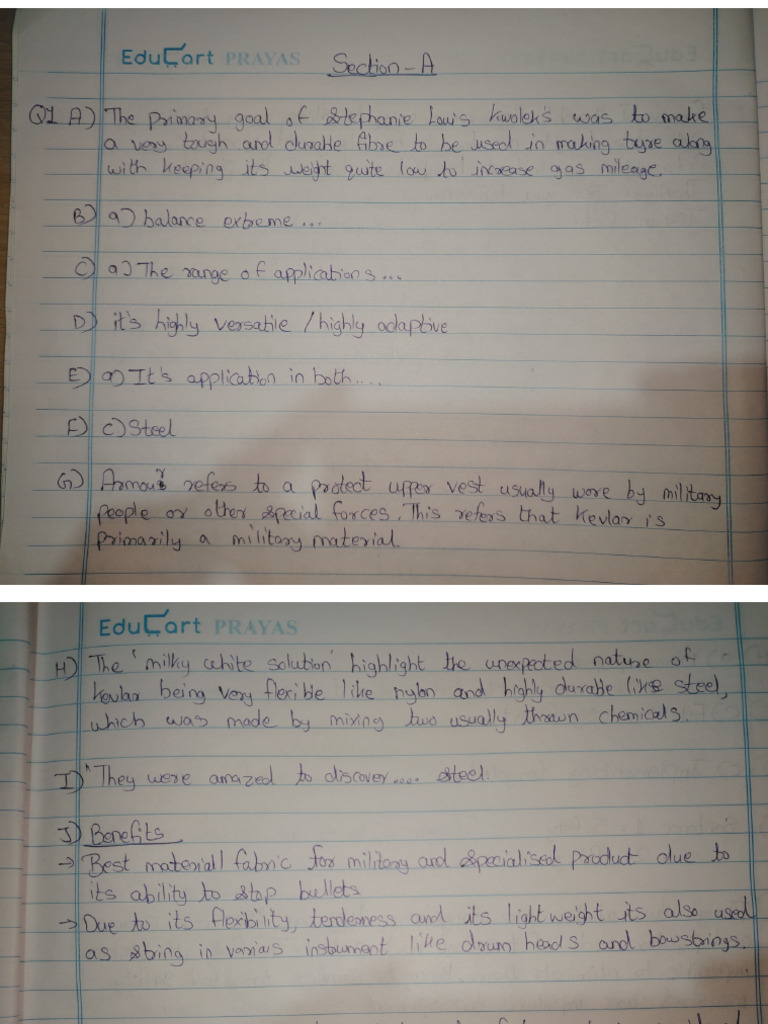 EduCart PRAYAS
Section-A
Q1 A) The primary goal of Stephanie Louis Kwolek's was to make
a very tough and durable fibre to be used in making tyre along
with keeping its weight quite low to increase gas mileage.
B) a) balance extreme ...
C) a) The range of applications ...
D) it's highly versatile / highly adaptive
E) a) It's application in both ....
F) c) Steel
G) Armour refers to a protect upper vest usually wore by military
people or other special forces. This refers that Kevlar is
primarily a military material.
EduCart PRAYAS
H) The 'milky white solution' highlight the unexpected nature of
kevlar being very flexible like nylon and highly durable like steel,
which was made by mixing two usually thrown chemicals.
I) "They were amazed to discover .... steel.
J) Benefits
→ Best material/fabric for military and specialised product due to
its ability to stop bullets
→ Due to its flexibility, tenderness and its lightweight its also used
as string in various instrument like drum heads and bowstrings.